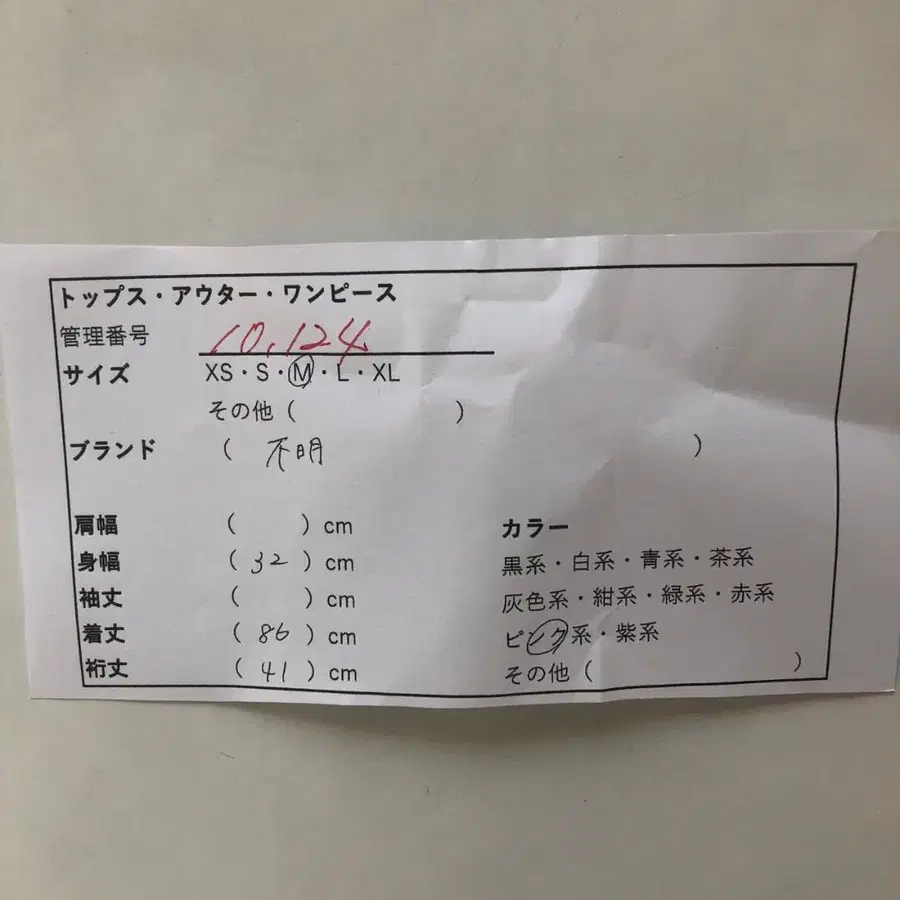 トップス・アウター・ワンピース
管理番号 10,124
サイズ XS・S・M・L・XL
その他（ ）
ブランド （ 不明 ）
肩幅 （ ）cm カラー
身幅 （ 32 ）cm 黒系・白系・青系・茶系
袖丈 （ ）cm 灰色系・紺系・緑系・赤系
着丈 （ 86 ）cm ピンク系・紫系
裄丈 （ 41 ）cm その他（ ）